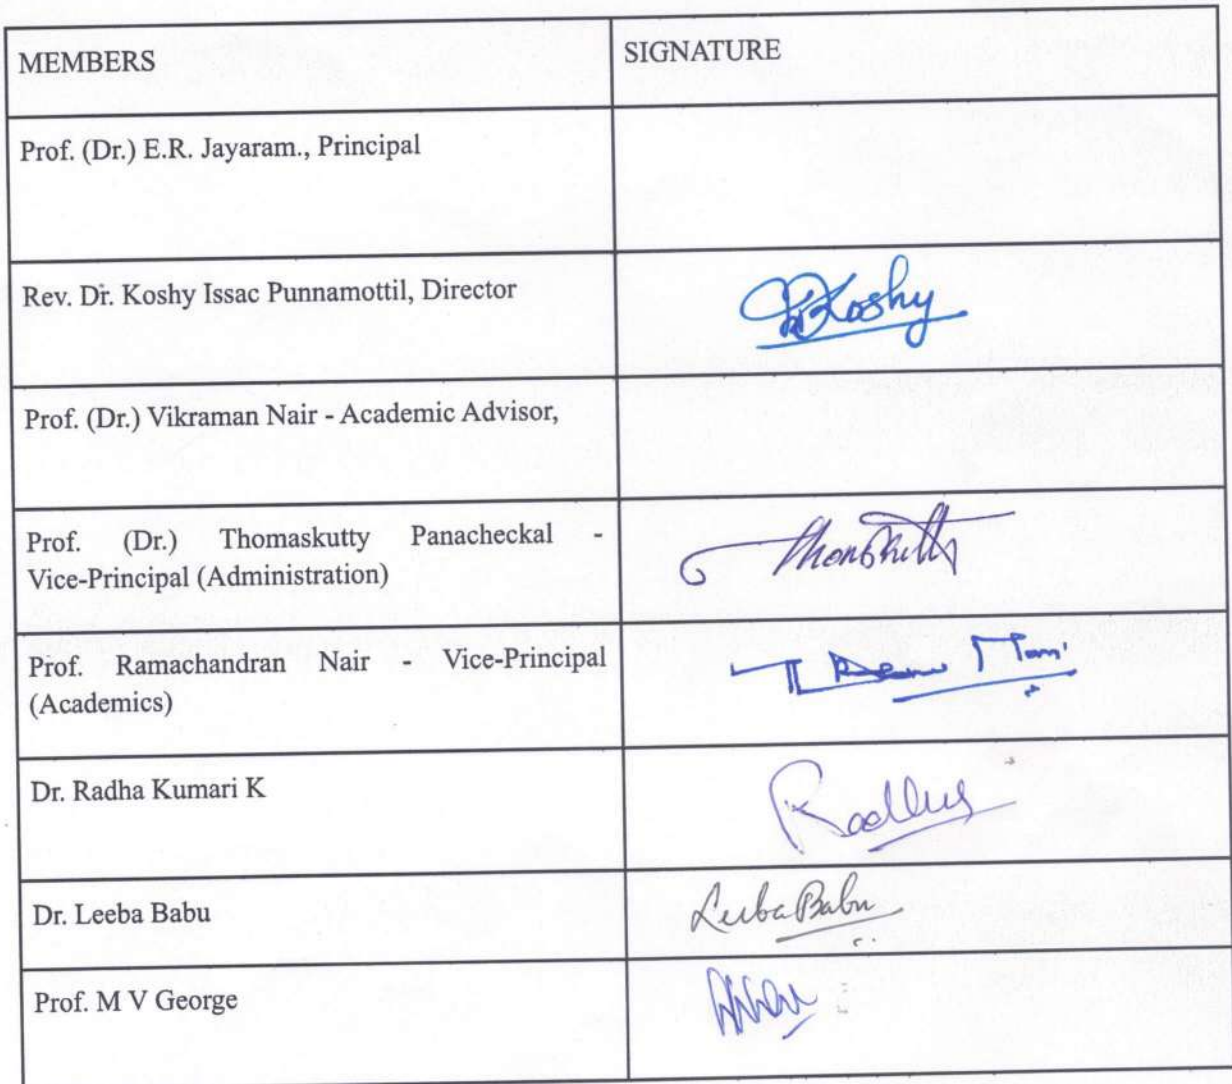 MEMBERS SIGNATURE
Prof. (Dr.) E.R. Jayaram., Principal
Rev. Dr. Koshy Issac Punnamottil, Director Koshy
Prof. (Dr.) Vikraman Nair - Academic Advisor,
Prof. (Dr.) Thomaskutty Panacheckal -
Vice-Principal (Administration)
Prof. Ramachandran Nair - Vice-Principal
(Academics)
Dr. Radha Kumari K
Dr. Leeba Babu Leeba Babu
Prof. M V George